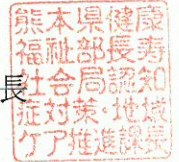 長
熊本県健康
福祉部長寿
社会局認知
症対策・地域
ケア推進課長